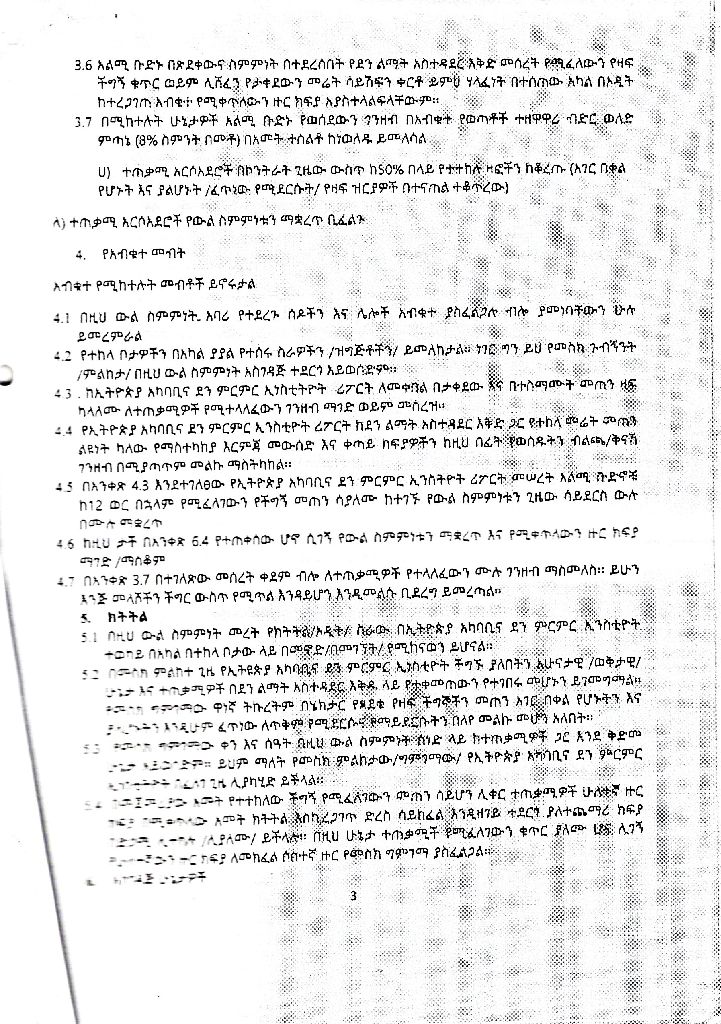 3.6 አልሚ ቡድኑ በጽደቀውና ስምምነት በተደረሰበት የደን ልማት አስተዳደር እቅድ መሰረት የሚፈለውን የዛፍ
ችግኝ ቁጥር ወይም ሊሸፈን የታቀደውን መሬት ሳይሸፍን ቀርቶ ይምህ ሃላፊነት በተሰጠው አካል በኦዲት
ከተረጋገጠ አብቁተ የሚቀጥለውን ዙር ክፍያ አያስተላልፍላቸውም።
3.7 በሚከተሉት ሁኔታዎች አልሚ ቡድኑ የወሰደውን ገንዘብ በአብቁተ የወጣቶች ተዘዋዋሪ ብድር ወለድ
ምጣኔ (8% ስምንት በመቶ) በአመት ተሰልቶ ከነወለዱ ይመለሳል
ሀ) ተጠቃሚ አርሶአደሮች በኮንትራት ጊዜው ውስጥ ከ50% በላይ የተተከሉ ዛፎችን ከቆረጡ (አገር በቀል
የሆኑት እና ያልሆኑት /ፈጥነው የሚደርሱት/ የዛፍ ዝርያዎች በተናጠል ተቆጥረው)
ለ) ተጠቃሚ አርሶአደሮች የውል ስምምነቱን ማቋረጥ ቢፈልጉ
4. የአብቁተ መብት
አብቁተ የሚከተሉት መብቶች ይኖሩታል
4.1 በዚህ ውል ስምምነት አባሪ የተደረጉ ሰዶችን እና ሌሎች አብቁተ ያስፈልጋሉ ብሎ ያመነባቸውን ሁሉ
ይመረምራል
4.2 የተከላ ቦታዎችን በአካል ያያል የተሰሩ ስራዎችን /ዝግጅቶችን/ ይመለከታል። ነገር ግን ይህ የመስክ ጉብኝት
/ምልከታ/ በዚህ ውል ስምምነት አስገዳጅ ተደርጎ አይወሰድም።
4.3 . ከኢትዮጵያ አካባቢና ደን ምርምር ኢነስቲትዮት ሪፖርት ለመቀበል በታቀደው እና በተስማሙት መጠን ዛፍ
ካላለሙ ለተጠቃሚዎች የሚተላለፈውን ገንዘብ ማገድ ወይም መሰረዝ።
4.4 የኢትዮጵያ አካባቢና ደን ምርምር ኢንስቲዮት ሪፖርት ከደን ልማት አስተዳደር እቅድ ጋር የተከላ መሬት መጠን
ልዩነት ካለው የማስተካከያ እርምጃ መውሰድ እና ቀጣይ ክፍያዎችን ከዚህ በፊት የወሰዱትን ብልጫ/ቅናሽ
ገንዘብ በሚያጣጥም መልኩ ማስትካከል።
4.5 በአንቀጽ 4.3 እንደተገለፀው የኢትዮጵያ አካባቢና ደን ምርምር ኢንስትዮት ሪፖርት መሠረት አልሚ ቡድኖቹ
ከ12 ወር በኋላም የሚፈለገውን የችግኝ መጠን ሳያለሙ ከተገኙ የውል ስምምነቱን ጊዜው ሳይደርስ ውሉ
በሙሉ መቋረጥ
4.6 ከዚህ ታች በአንቀጽ 6.4 የተጠቀሰው ሆኖ ሲገኝ የውል ስምምነቱን ማቋረጥ እና የሚቀጥለውን ዙር ክፍያ
ማገድ /ማስቆም
4.7 በአንቀጽ 3.7 በተገለጽው መሰረት ቀደም ብሎ ለተጠቃሚዎች የተላለፈውን ሙሉ ገንዘብ ማስመለስ። ይሁን
እንጅ መላሾችን ችግር ውስጥ የሚጥል እንዳይሆን እንዲመልሱ ቢደረግ ይመረጣል።
5. ክትትል
5.1 በዚህ ውል ስምምነት መረት የክትትል/ኦዲት/ ስራው በኢትዮጵያ አካባቢና ደን ምርምር ኢንስቲዮት
ተወካይ በአካል በተከላ ቦታው ላይ በመሄድ/በመገኘት/ የሚከናወን ይሆናል።
5.2 በመስክ ምልከተ ጊዜ የኢትዩጵያ አካባቢና ደን ምርምር ኢነስቲዮት ችግኙ ያለበትን አሁናታዊ /ወቅታዊ/
ሁኔታ እና ተጠቃሚዎች በደን ልማት አስተዳደር እቅዱ ላይ የተቀመጠውን የተገበሩ መሆኑን ይገመግማል።
የመስክ ግምገማው ዋነኛ ትኩረትም በሄክታር የጸደቁ የዛፍ ችግኞችን መጠን አገር በቀል የሆኑትን እና
እንዲሁም ፈጥነው ለጥቅም የሚደርሱና የማይደርሱትን በለየ መልኩ መሆን አለበት።
5.3 የመስክ ግምገማው ቀን እና ሰዓት በዚህ ውል ስምምነት ሰነድ ላይ ከተጠቃሚዎች ጋር እንደ ቅድመ
ሁኔታ አይወሰድም። ይህም ማለት የመስክ ምልከታው/ግምገማው/ የኢትዮጵያ አካባቢና ደን ምርምር
በፈለገ ጊዜ ሊያካሂድ ይችላል።
5.4 አመት የተተከለው ችግኝ የሚፈለገውን መጠን ሳይሆን ሊቀር ተጠቃሚዎች ሁለተኛ ዙር
አመት ክትትል እስኪረጋገጥ ድረስ ሳይከፈል እንዲዘገይ ተደርጎ ያለተጨማሪ ክፍያ
/ሊያለሙ/ ይችላሉ። በዚህ ሁኔታ ተጠቃሚች የሚፈለገውን ቁጥር ያለሙ ሆኖ ሲገኝ
ዙር ክፍያ ለመከፈል ሶስተኛ ዙር የመስክ ግምገማ ያስፈልጋል።
ሁኔታዎች
3